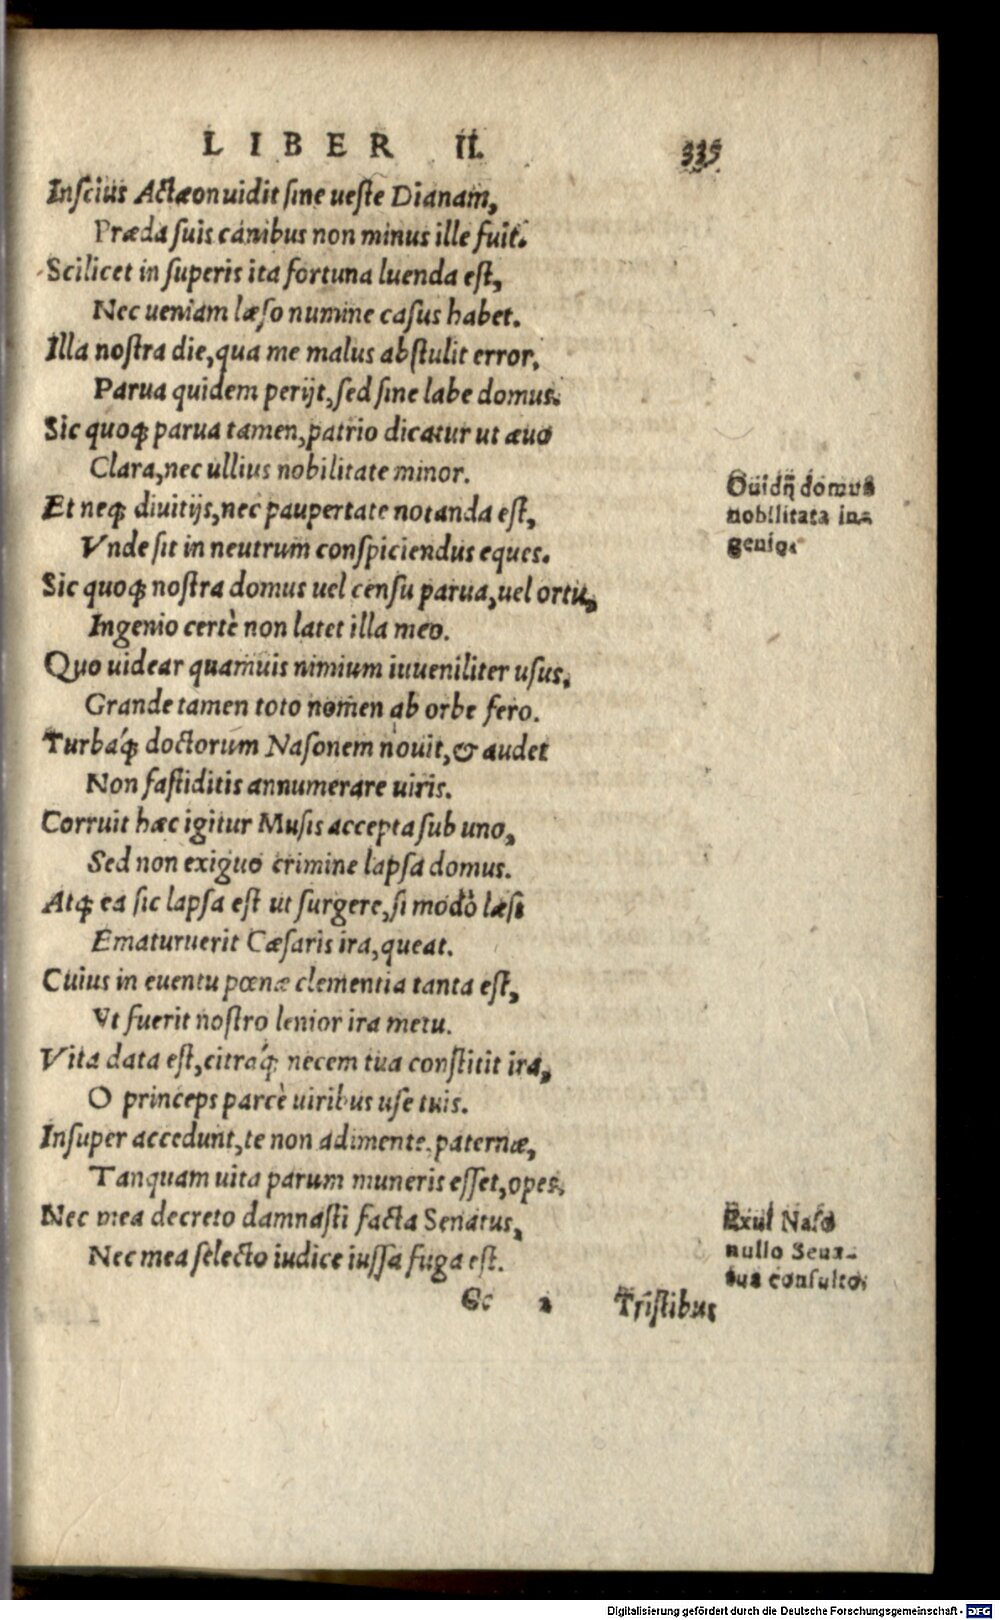 LIBER II. 335
Inscius Actæon uidit sine ueste Dianam,
Præda suis canibus non minus ille fuit.
Scilicet in superis ita fortuna luenda est,
Nec ueniam læso numine casus habet.
Illa nostra die, qua me malus abstulit error,
Parua quidem perijt, sed sine labe domus.
Sic quoq́; parua tamen, patrio dicatur ut æuo
Clara, nec ullius nobilitate minor.
Et neq́; diuitijs, nec paupertate notanda est,
Vnde sit in neutrum conspiciendus eques.
Sic quoq́; nostra domus uel censu parua, uel ortu,
Ingenio certè non latet illa meo.
Quo uidear quamuis nimium iuueniliter usus,
Grande tamen toto nomen ab orbe fero.
Turbaq́; doctorum Nasonem nouit, & audet
Non fastiditis annumerare uiris.
Corruit hæc igitur Musis accepta sub uno,
Sed non exiguo crimine lapsa domus.
Atq́; ea sic lapsa est ut surgere, si modò læsi
Ematuruerit Cæsaris ira, queat.
Cuius in euentu pœnæ clementia tanta est,
Vt fuerit nostro lenior ira metu.
Vita data est, citraq́; necem tua constitit ira,
O princeps parcè uiribus use tuis.
Insuper accedunt, te non adimente, paternæ,
Tanquam uita parum muneris esset, opes.
Nec mea decreto damnasti facta Senatus,
Nec mea selecto iudice iussa fuga est.
Ouidij domus
nobilitata in-
genio.
Exul Naso
nullo Sena-
tus consulto.
Gc 2 Tristibus
Digitalisierung gefördert durch die Deutsche Forschungsgemeinschaft - DFG